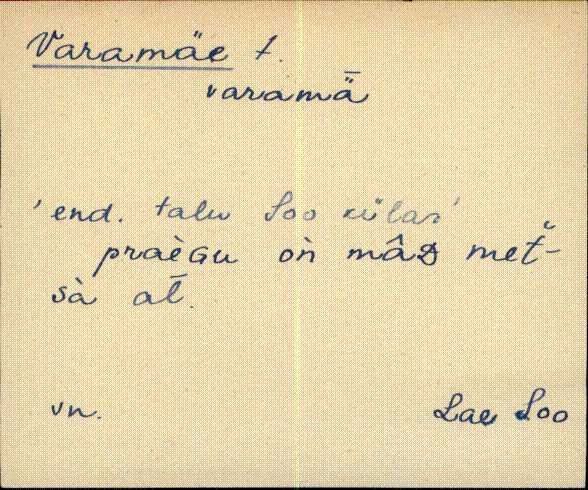 Varamäe t.
varamǟ
'end. talu Soo külas'
praèGu oǹ mâD met̆-
sà al̄.
vn.
Lae Soo